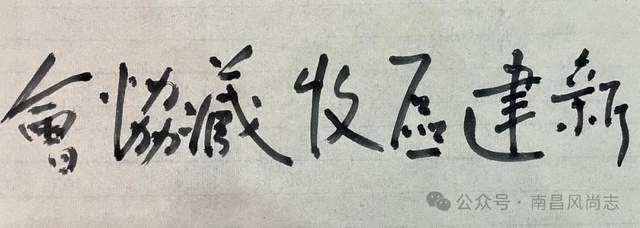 新建區收藏協會
公众号 · 南昌风尚志